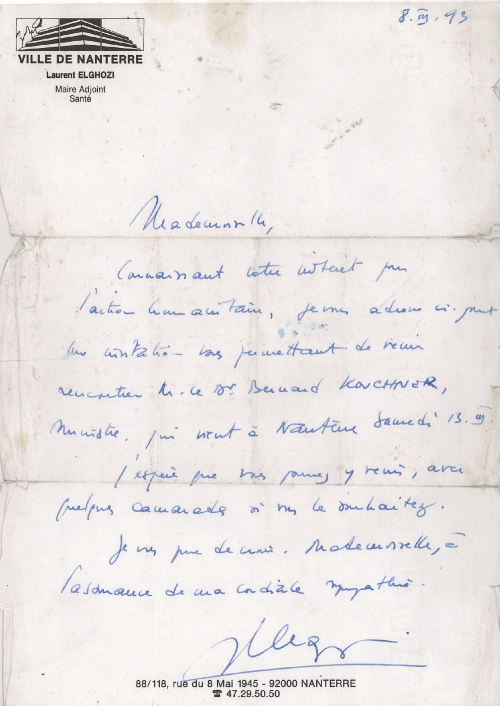 8.III.93
VILLE DE NANTERRE
Laurent ELGHOZI
Maire Adjoint
Santé
Mademoiselle,
Connaissant votre intérêt pour
l'action humanitaire, je vous adresse ci-joint
une invitation vous permettant de venir
rencontrer M. le Dr Bernard KOUCHNER,
Ministre, qui vient à Nanterre Samedi 13.III
J'espère que vous pourrez y venir, avec
quelques camarades si vous le souhaitez.
Je vous prie de croire, Mademoiselle, à
l'assurance de ma cordiale sympathie.
88/118, rue du 8 Mai 1945 - 92000 NANTERRE
☎ 47.29.50.50